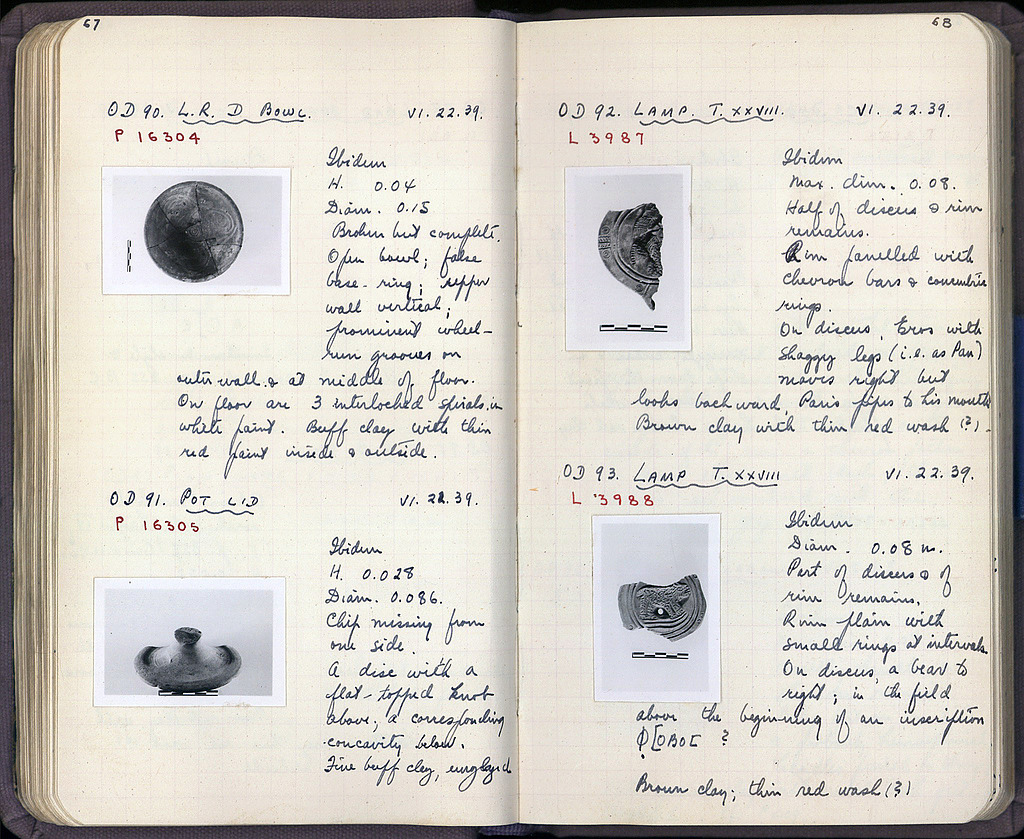 67
OD 90. L.R. D BOWL. VI. 22. 39.
P 16304
Ibidem
H. 0.04
Diam. 0.15
Broken but complete.
Open bowl; false
base-ring; upper
wall vertical;
prominent wheel-
run grooves on
outer wall & at middle of floor.
On floor are 3 interlocked spirals in
white paint. Buff clay with thin
red paint inside & outside.
OD 91. POT LID VI. 22. 39.
P 16305
Ibidem
H. 0.028
Diam. 0.086.
Chip missing from
one side.
A disc with a
flat-topped knob
above; a corresponding
concavity below.
Fine buff clay, unglazed
68
OD 92. LAMP. T. XXVIII. VI. 22. 39.
L 3987
Ibidem
Max. dim. 0.08.
Half of discus & rim
remains.
Rim panelled with
chevron bars & concentric
rings.
On discus, Eros with
shaggy legs (i.e. as Pan)
moves right but
looks backward, Pan's pipes to his mouth
Brown clay with thin red wash (?).
OD 93. LAMP T. XXVIII VI. 22. 39.
L 3988
Ibidem
Diam. 0.08 m.
Part of discus & of
rim remains.
Rim plain with
small rings at intervals
On discus, a bear to
right; in the field
above the beginning of an inscription
Φ[OBOC ?
Brown clay; thin red wash (?)